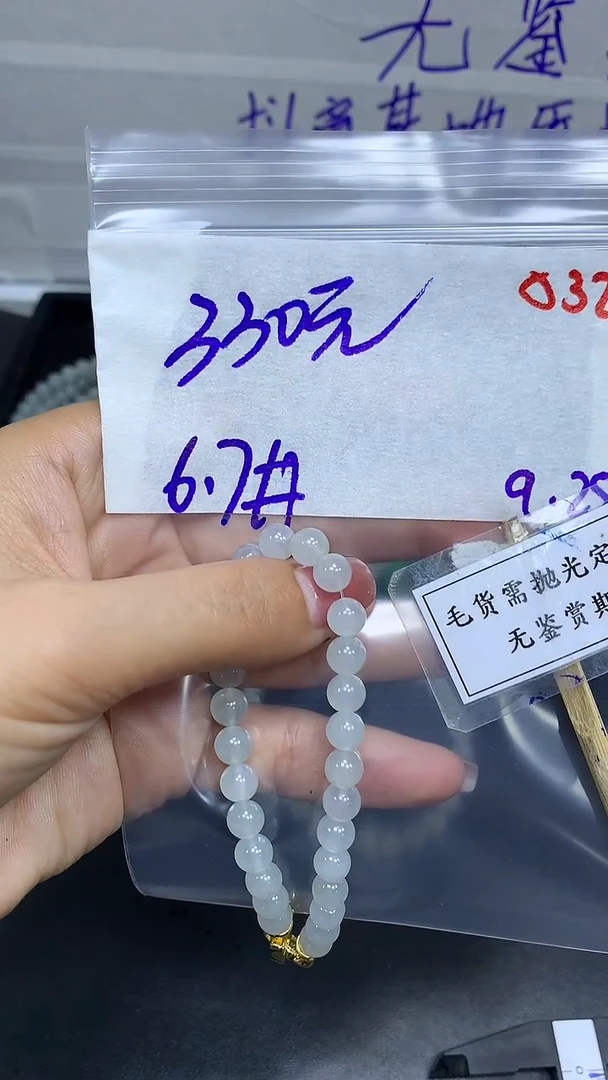 无鉴
330元
032
6.7#
9.2
毛货需抛光定
无鉴赏期